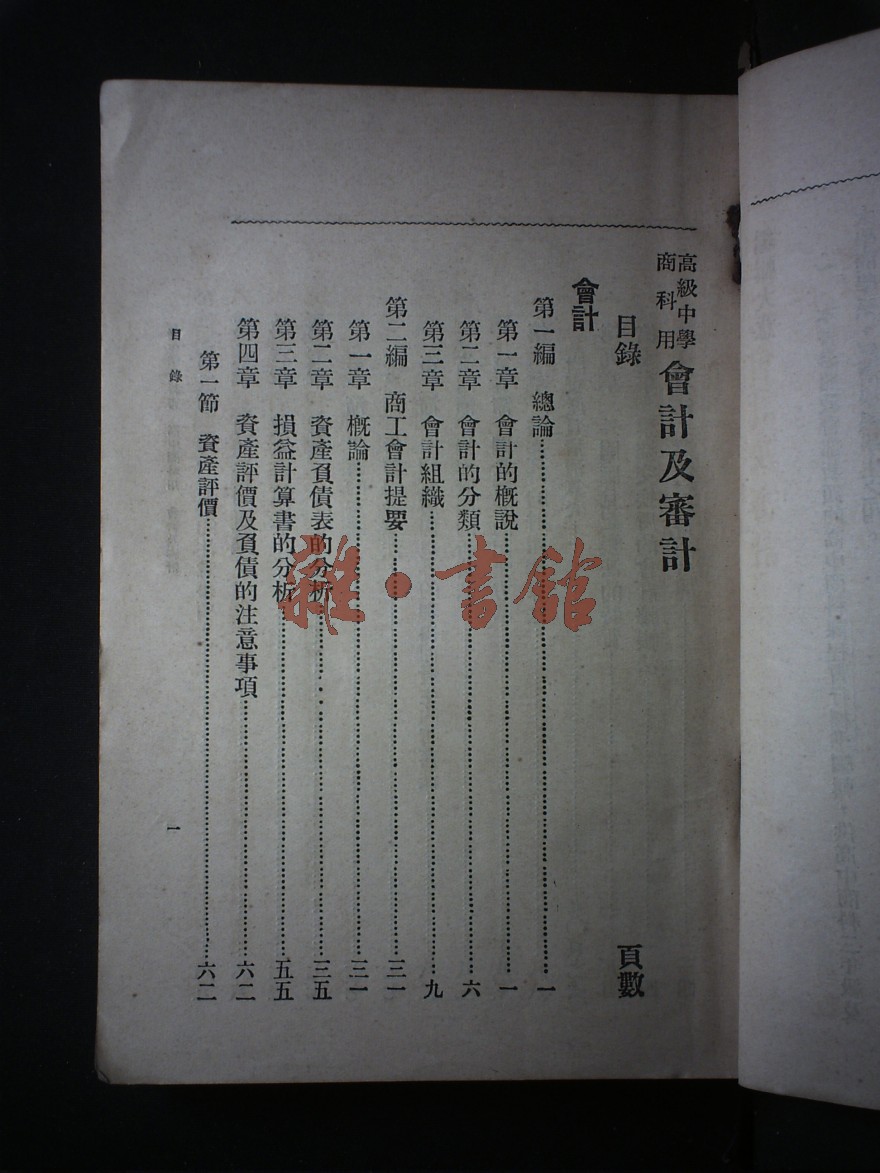 高級中學
商科用
會計及審計
目錄 頁數
會計
第一編 總論………一
第一章 會計的概說………一
第二章 會計的分類………六
第三章 會計組織………九
第二編 商工會計提要………三一
第一章 概論………三一
第二章 資產負債表的分析………三五
第三章 損益計算書的分析………五五
第四章 資產評價及負債的注意事項………六二
第一節 資產評價………六二
目錄 一
雜·書館